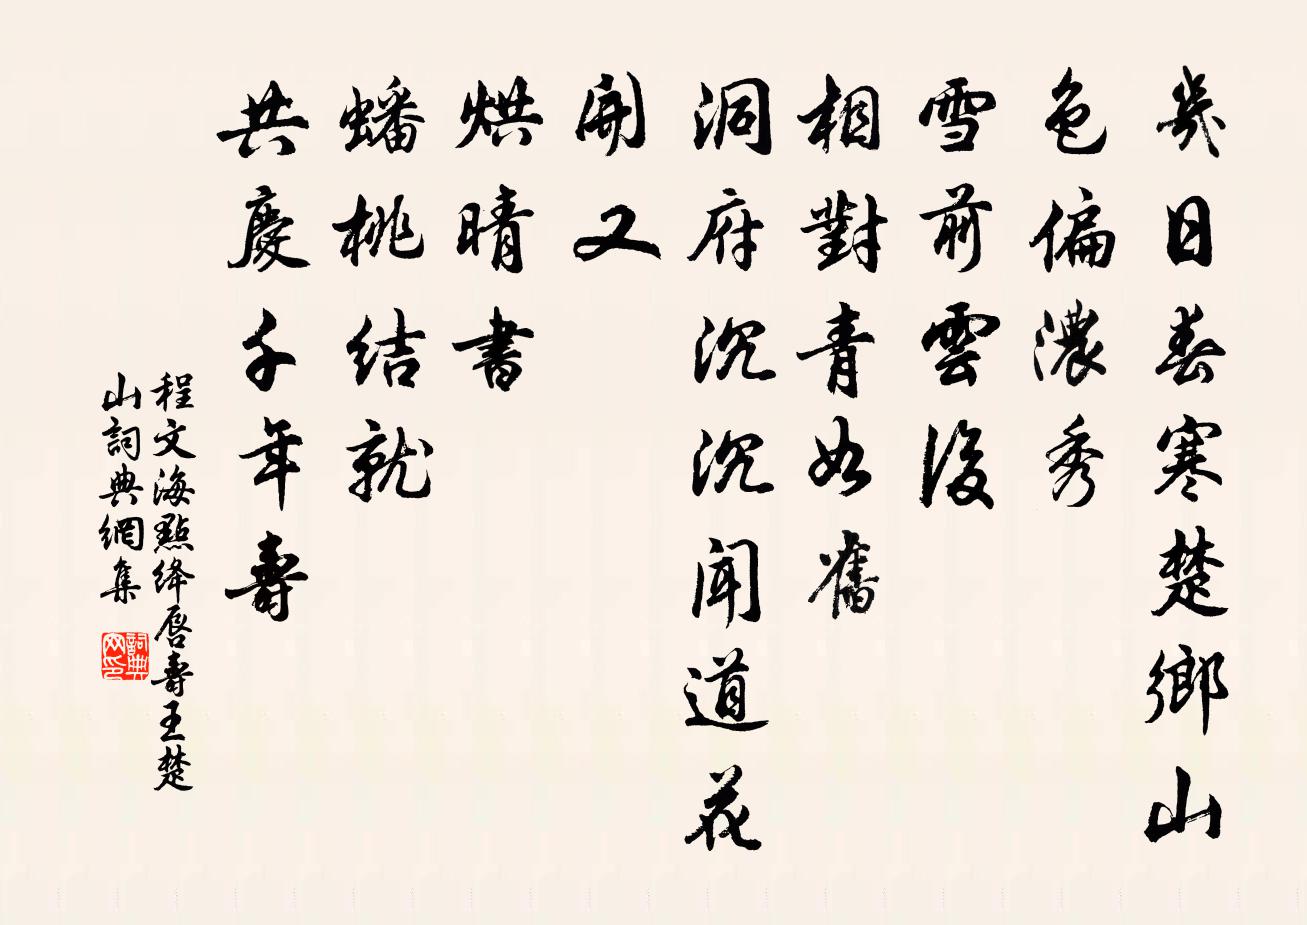 幾日春寒楚鄉山
色偏濃秀
雪前雲後
相對青如舊
洞府沉沉聞道花
開又
烘晴書
蟠桃結就
共慶千年壽
程文海點絳唇壽王楚
山詞典網集
詞典
网印